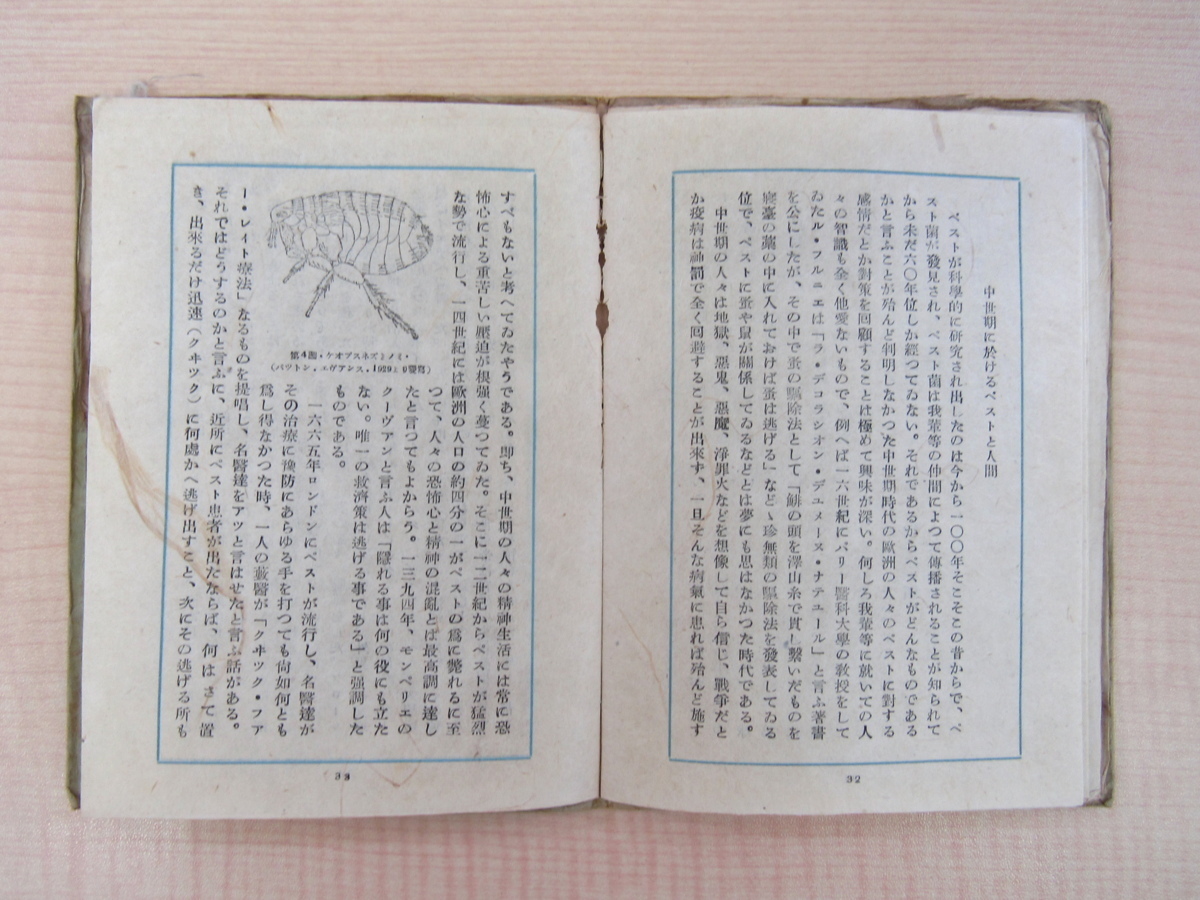 中世期に於けるペストと人間
ペストが科學的に研究され出したのは今から一〇〇年そこそこの昔からで、ペ
スト菌が發見され、ペスト菌は我輩等の仲間によつて傳播されることが知られて
から未だ六〇年位しか經つてゐない。それであるからペストがどんなものである
かと言ふことが殆んど判明しなかつた中世期時代の歐洲の人々のペストに對する
感情だとか對策を回顧することは極めて興味が深い。何しろ我輩等に就いての人
々の智識も全く他愛ないもので、例へば一六世紀にパリー醫科大學の教授をして
ゐたル・フルニエは「ラ・デコラシオン・デユメーヌ・ナテュール」と言ふ著書
を公にしたが、その中で蚤の驅除法として「鯡の頭を澤山糸で貫し繫いだものを
寢臺の藁の中に入れておけば蚤は逃げる」など、珍無類の驅除法を發表してゐる
位で、ペストに蚤や鼠が關係してゐるなどとは夢にも思はなかつた時代である。
中世期の人々は地獄、惡鬼、惡魔、淨罪火などを想像して自ら信じ、戰爭だと
か疫病は神罰で全く回避することが出來ず、一旦そんな病氣に患れば殆んど施す
32
すべもないと考へてゐたやうである。即ち、中世期の人々の精神生活には常に恐
怖心による重苦しい壓迫が根強く蔓つてゐた。そこに一二世紀からペストが猛烈
な勢で流行し、一四世紀には歐洲の人口の約四分の一がペストの爲に斃れるに至
つて、人々の恐怖心と精神の混亂とは最高調に達し
たと言つてもよからう。一三九四年、モンペリエの
クーヴアンと言ふ人は「隱れる事は何の役にも立た
ない。唯一の救濟策は逃げる事である」と强調した
ものである。
一六六五年ロンドンにペストが流行し、名醫達が
その治療に豫防にあらゆる手を打つても尙如何とも
爲し得なかつた時、一人の藪醫が「クヰツク・フア
第4圖・ケオプスネズミノミ・
(パツトン・エヴアンス・1929より轉寫)
ー・レイト療法」なるものを提唱し、名醫達をアツと言はせたと言ふ話がある。
それではどうするのかと言ふに、近所にペスト患者が出たならば、何はさて置
き、出來るだけ迅速(クヰツク)に何處かへ逃げ出すこと、次にその逃げる所も
33